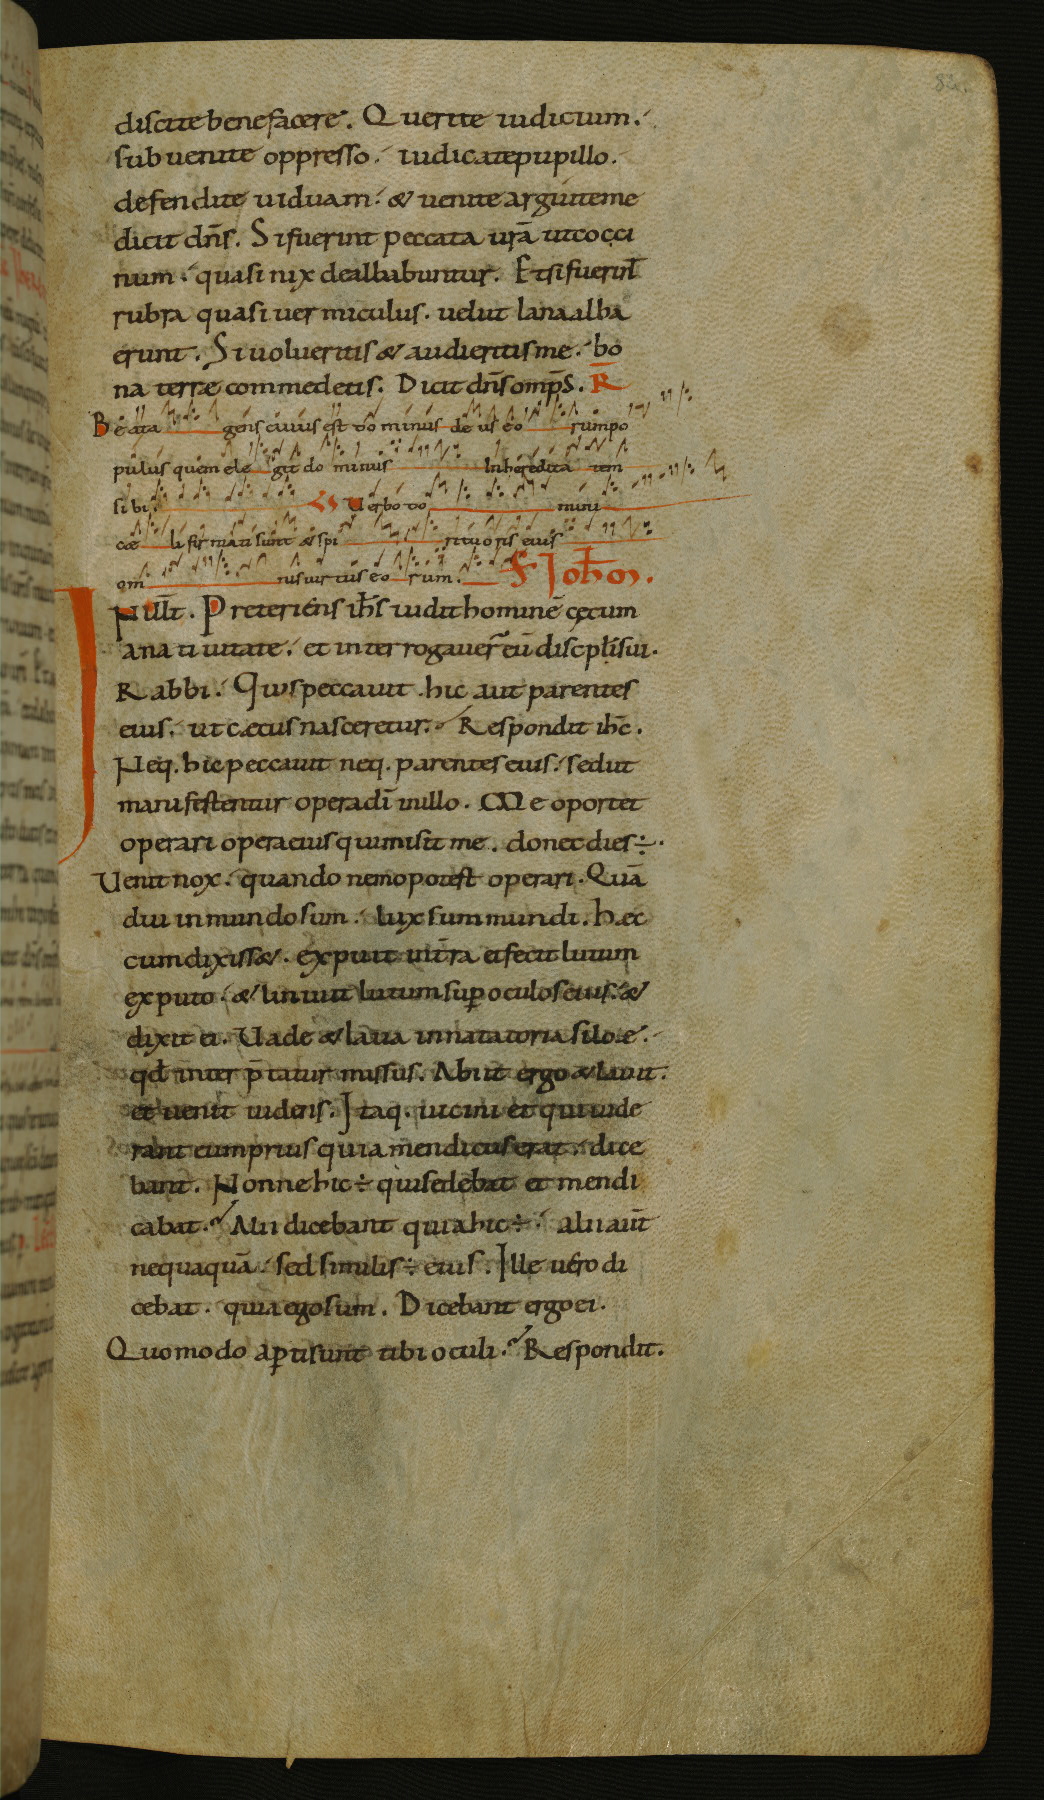 82.
discite benefacere. Querite iudicium.
subuenite oppresso. iudicate pupillo.
defendite uiduam. & uenite arguite me
dicit dn̄s. Si fuerint peccata ur̄a ut cocci
num. quasi nix dealbabuntur. Et si fuerint̄
rubra quasi uermiculus. uelut lana alba
erunt. Si uolueritis & audieritis me. bo
na terræ commedetis. Dicit dn̄s omp̄s. R̄
Beata gens cuius est do minus de us eo rum po
pulus quem ele git do minus In heredita tem
sibi. V Uerbo do mini
cæ li firmati sunt & spi ritu oris eius
om nis uirtus eo rum. S̄ Ioh̄on.
IN ill̄t. Preteriens ih̄s uidit hominē cęcum
a natiuitate. et interrogauer̄ eū discpl̄i sui.
Rabbi. Quis peccauit. hic aut parentes
eius. ut cæcus nasceretur. Respondit ih̄c.
Neq. hic peccauit neq. parentes eius. sed ut
manifestentur opera dī in illo. Me oportet
operari opera eius qui misit me. donec dies ÷.
Uenit nox. quando nemo potest operari. Quā
diu in mundo sum. lux sum mundi. hæc
cum dixiss&. expuit in t̄ra et fecit lutum
ex puto. & liniuit lutum sup̱ oculos eius. &
dixit ei. Uade & laua in natatoria siloæ.
qd̄ interp̄tatur missus. Abiit ergo & lauit.
et uenit uidens. Itaq. uicini et qui uide
rant eum prius quia mendicus erat. dice
bant. Nonne hic ÷ qui sedebat et mendi
cabat. Alii dicebant quia hic ÷. alii aut̄
nequaquā. sed similis ÷ eius. Ille uero di
cebat. quia ego sum. Dicebant ergo ei.
Quomodo ap̱ti sunt tibi oculi. Respondit.